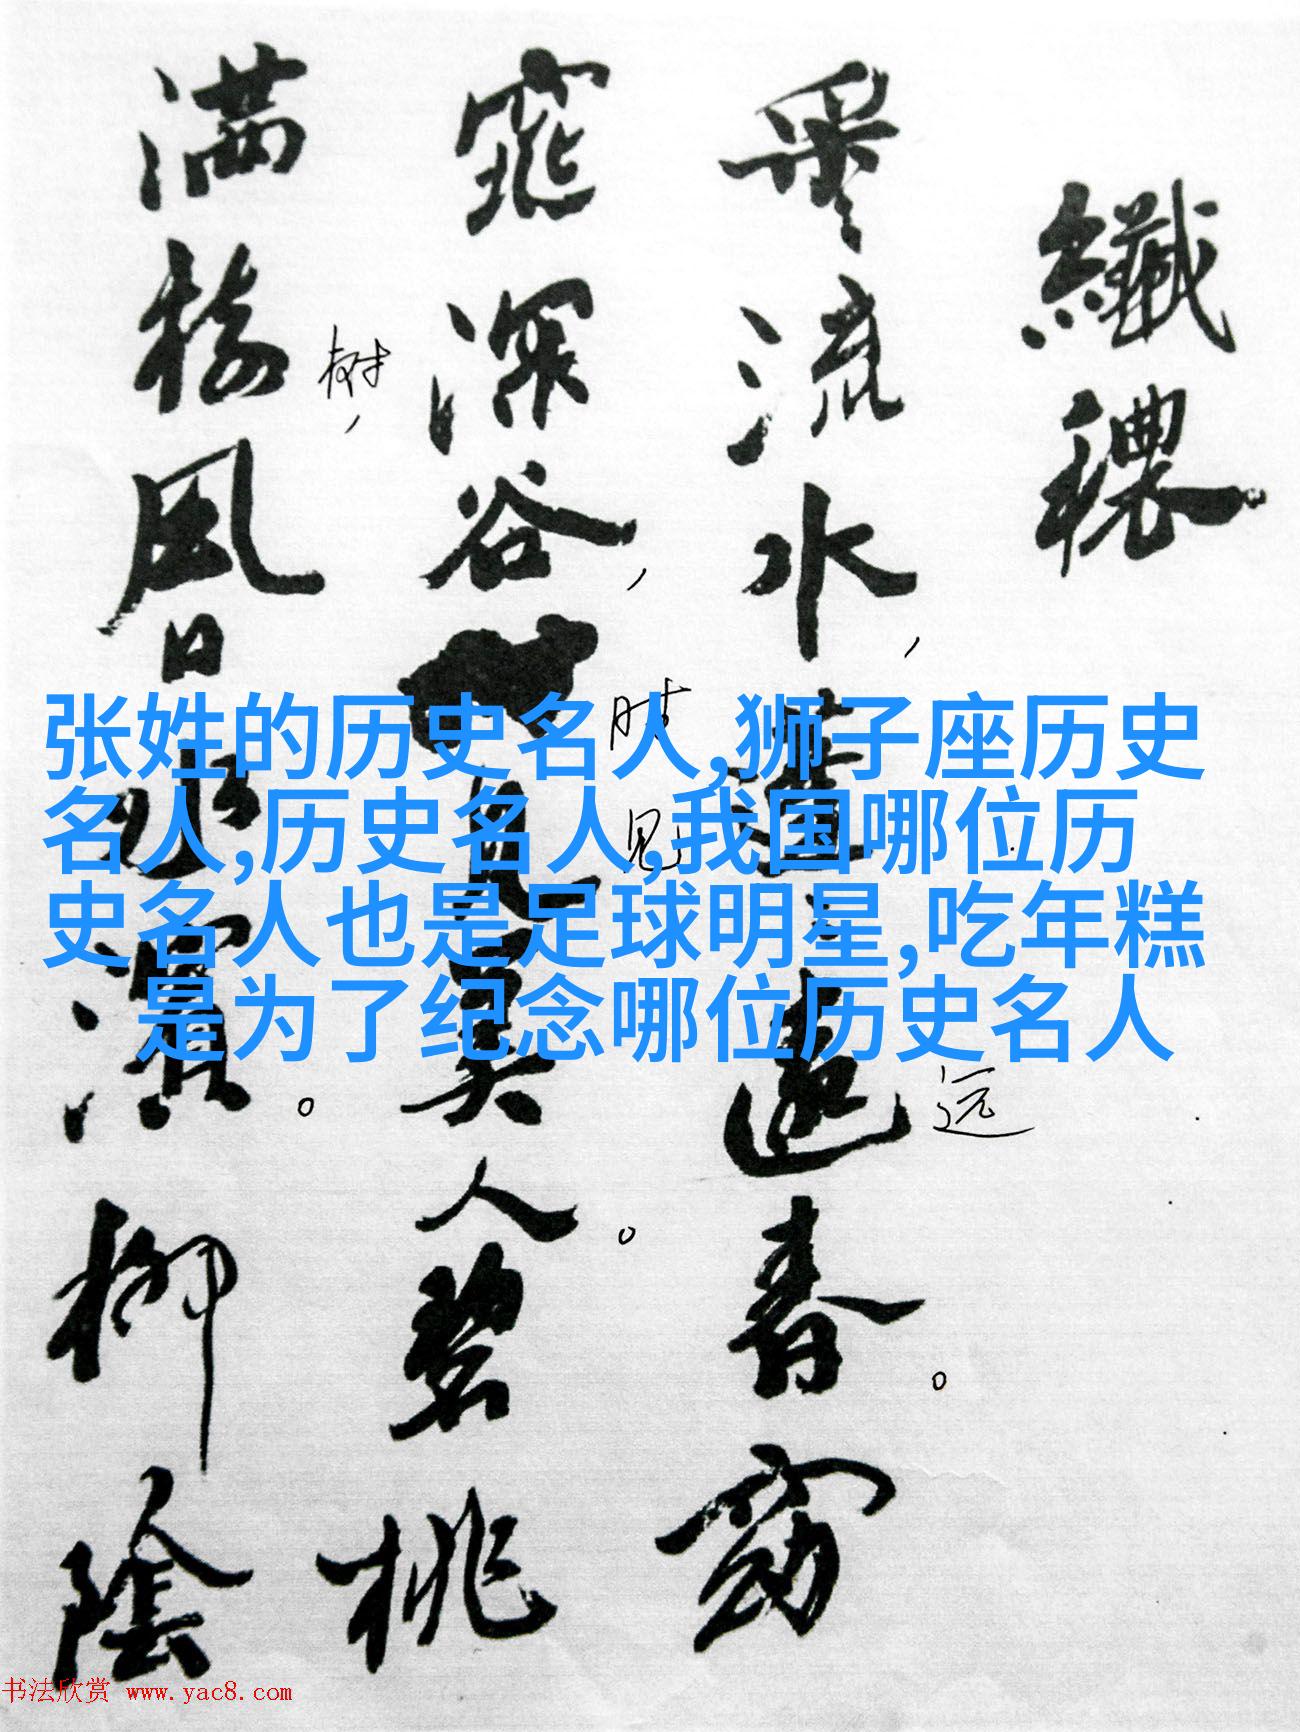 纖穠
采〻流水，蓬〻遠春。窈
窕深谷，見美人。碧桃
满樹風日水濱。柳陰
树，
时
见
远
张姓的历史名人,狮子座历史
名人,历史名人,我国哪位历
史名人也是足球明星,吃年糕
是为了纪念哪位历史名人
书法欣赏 www.yac8.com